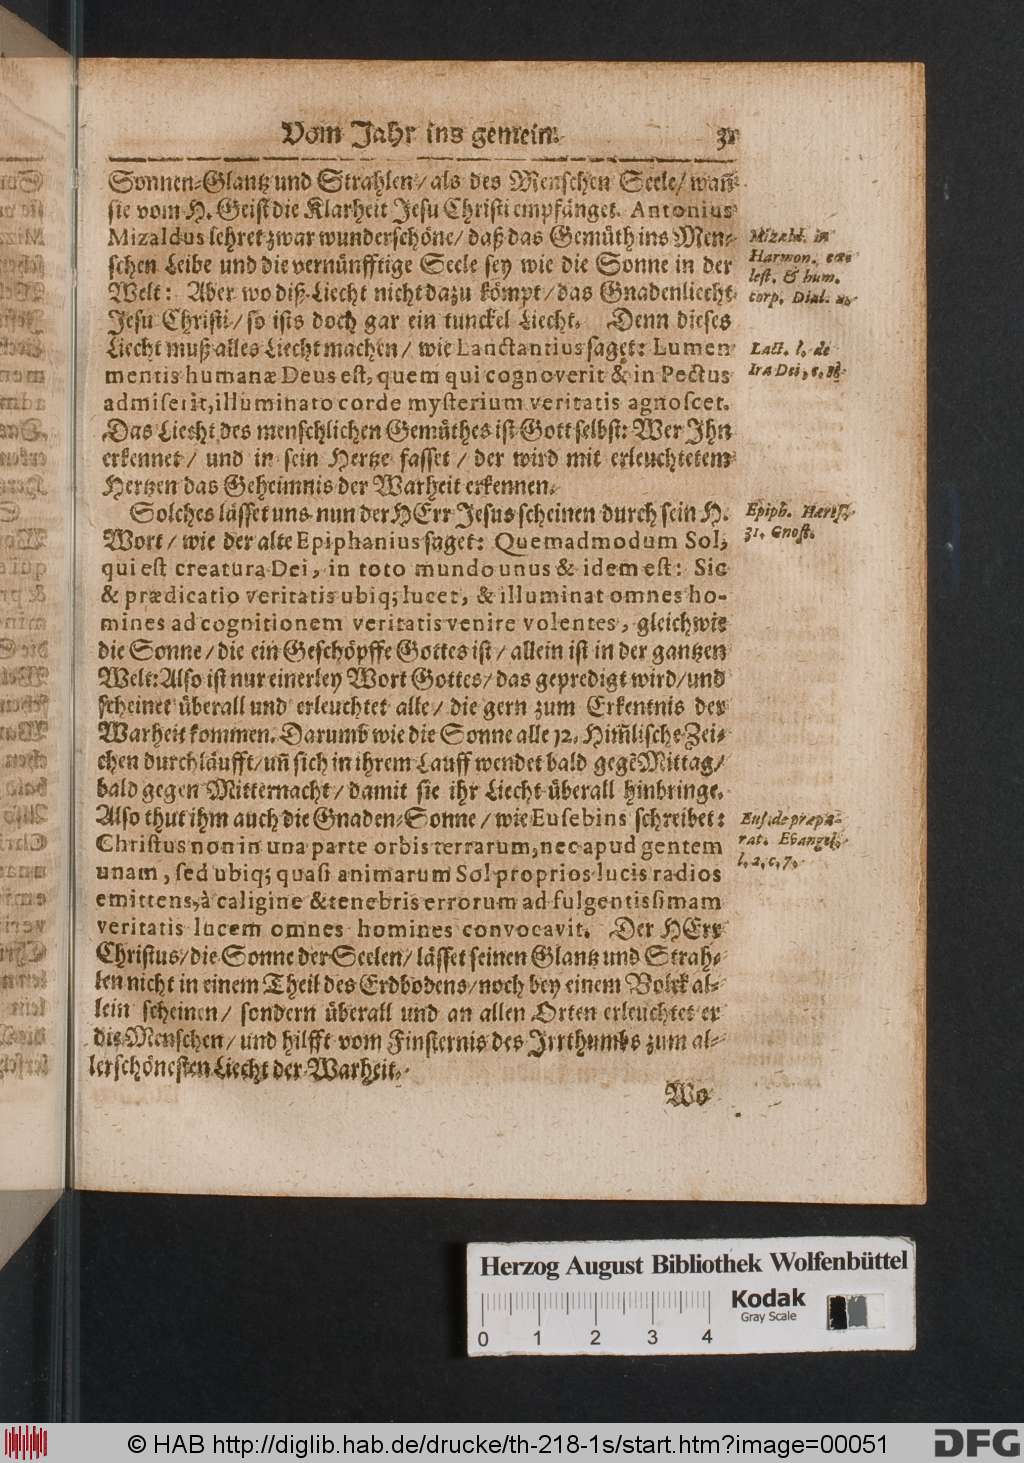 Vom Jahr ins gemein. 31
Sonnen-Glantz und Strahlen/ als des Menschen Seele/ wañ
sie vom H. Geist die Klarheit Jesu Christi empfänget. Antonius
Mizaldus lehret zwar wunderschöne/ daß das Gemüth ins Men-
schen Leibe und die vernünfftige Seele sey wie die Sonne in der
Welt: Aber wo diß Liecht nicht dazu kömpt/ das Gnadenliecht
Jesu Christi/ so ists doch gar ein tunckel Liecht. Denn dieses
Liecht muß alles Liecht machen/ wie Lanctantius saget: Lumen
mentis humanæ Deus est, quem qui cognoverit & in Pectus
admiserit, illuminato corde mysterium veritatis agnoscet.
Das Liecht des menschlichen Gemüthes ist Gott selbst: Wer Ihn
erkennet/ und in sein Hertze fasset/ der wird mit erleuchtetem
Hertzen das Geheimnis der Warheit erkennen.
Solches lässet uns nun der HErr Jesus scheinen durch sein H.
Wort/ wie der alte Epiphanius saget: Quemadmodum Sol,
qui est creatura Dei, in toto mundo unus & idem est: Sic
& prædicatio veritatis ubiq; lucet, & illuminat omnes ho-
mines ad cognitionem veritatis venire volentes, gleichwie
die Sonne/ die ein Geschöpffe Gottes ist/ allein ist in der gantzen
Welt: Also ist nur einerley Wort Gottes/ das gepredigt wird/ und
scheinet überall und erleuchtet alle/ die gern zum Erkentnis der
Warheit kommen. Darumb wie die Sonne alle 12. Him̃lische Zei-
chen durchläufft/ uñ sich in ihrem Lauff wendet bald gegẽ Mittag/
bald gegen Mitternacht/ damit sie ihr Liecht überall hinbringe.
Also thut ihm auch die Gnaden-Sonne/ wie Eusebins schreibet:
Christus non in una parte orbis terrarum, nec apud gentem
unam, sed ubiq; quasi animarum Sol proprios lucis radios
emittens, à caligine & tenebris errorum ad fulgentissimam
veritatis lucem omnes homines convocavit. Der HErr
Christus/ die Sonne der Seelen/ lässet seinen Glantz und Strah-
len nicht in einem Theil des Erdbodens/ noch bey einem Volck al-
lein scheinen/ sondern überall und an allen Orten erleuchtet er
die Menschen/ und hilfft vom Finsternis des Irrthumbs zum al-
lerschönesten Liecht der Warheit.
Wo
Mizald. in
Harmon. cœ-
lest. & hum.
corp. Dial.
Lact. l. de
Ira Dei, c.
Epiph. Hæres.
31. Gnost.
Eus. de præpa-
rat. Evangel.
l. 2. c. 7.
Herzog August Bibliothek Wolfenbüttel
Kodak
Gray Scale
0 1 2 3 4
© HAB http://diglib.hab.de/drucke/th-218-1s/start.htm?image=00051
DFG